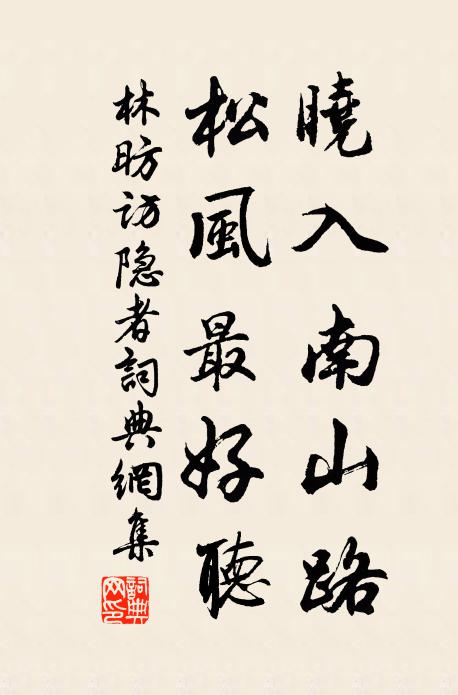 曉入南山路
松風最好聽
林昉訪隱者詞典網集
詞典
网印